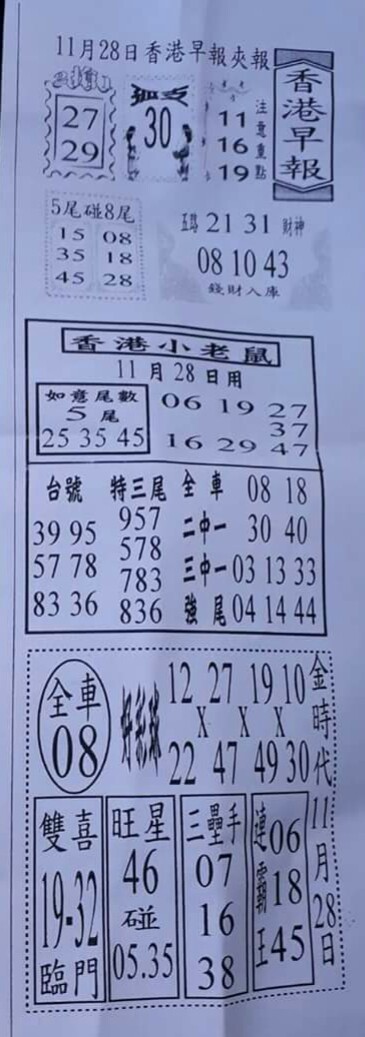 11月28日香港早報夾報
香港早報
27
29
孤支
30
注意重點
11
16
19
5尾碰8尾
15 08
35 18
45 28
五路 21 31 財神
08 10 43
錢財入庫
香港小老鼠
11月28日用
如意尾數
5尾
25 35 45
06 19 27
37
16 29 47
台號 特三尾 全車 08 18
39 95 957 二中一 30 40
57 78 578 三中一 03 13 33
83 36 783 強尾 04 14 44
836
金時代11月28日
全車
08
好彩球
12 27 19 10
X X X
22 47 49 30
雙喜
19-32
臨門
旺星
46
碰
05.35
三壘手
07
16
38
連霸王
06
18
45